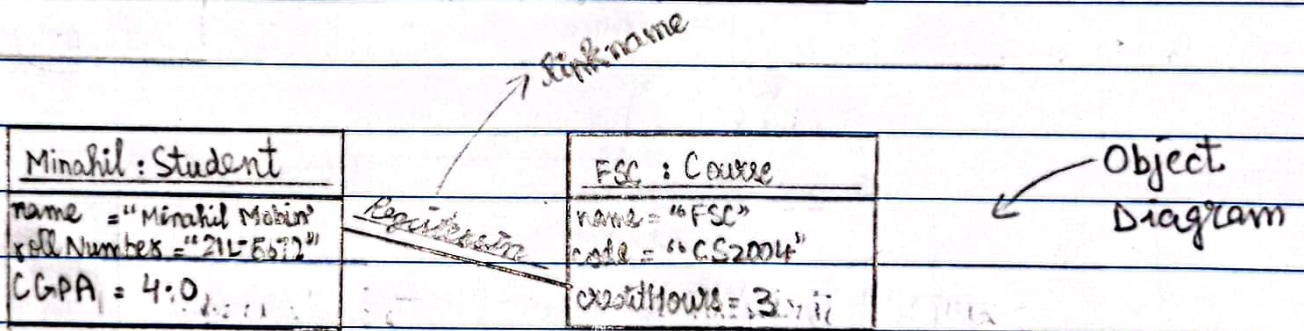 link name
Minahil : Student
name = "Minahil Mobin"
roll Number = "21L-
CGPA = 4.0
FSC : Course
name = "FSC"
code = "CS2004"
creditHours = 3
Object
Diagram